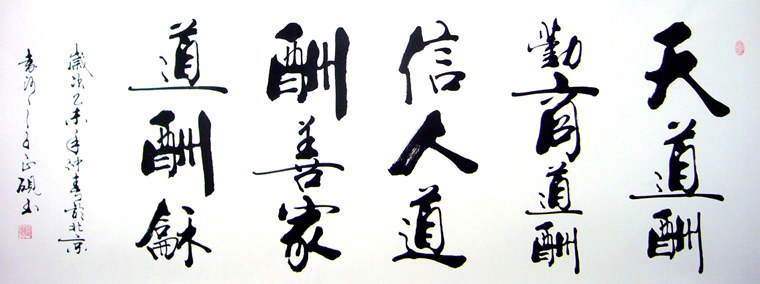 天道酬
勤商道酬
信人道
酬善家
道酬龢
歲次乙未年仲春於北京
正硯書